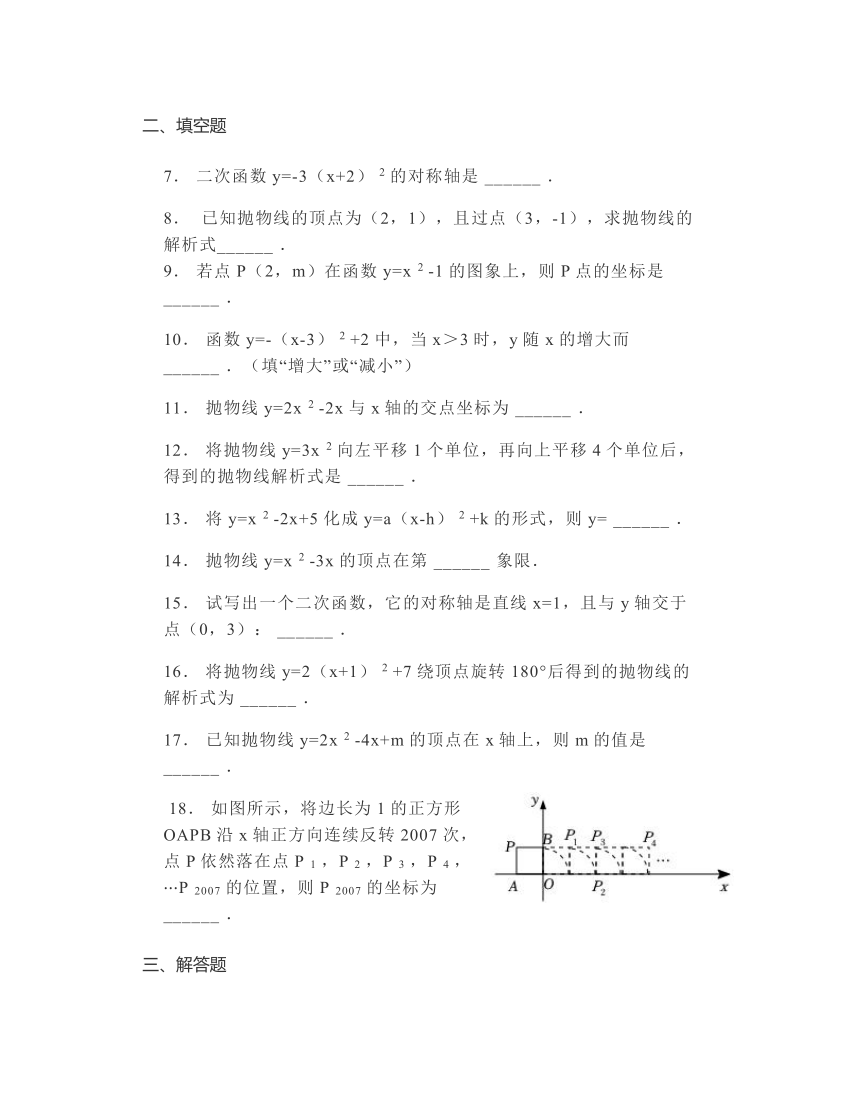 二、填空题
7． 二次函数 y=-3（x+2） 2 的对称轴是 ______ ．
8． 已知抛物线的顶点为（2，1），且过点（3，-1），求抛物线的
解析式______ ．
9． 若点 P（2，m）在函数 y=x 2 -1 的图象上，则 P 点的坐标是
______ ．
10． 函数 y=-（x-3） 2 +2 中，当 x＞3 时，y 随 x 的增大而
______ ．（填“增大”或“减小”）
11． 抛物线 y=2x 2 -2x 与 x 轴的交点坐标为 ______ ．
12． 将抛物线 y=3x 2 向左平移 1 个单位，再向上平移 4 个单位后，
得到的抛物线解析式是 ______ ．
13． 将 y=x 2 -2x+5 化成 y=a（x-h） 2 +k 的形式，则 y= ______ ．
14． 抛物线 y=x 2 -3x 的顶点在第 ______ 象限．
15． 试写出一个二次函数，它的对称轴是直线 x=1，且与 y 轴交于
点（0，3）： ______ ．
16． 将抛物线 y=2（x+1） 2 +7 绕顶点旋转 180°后得到的抛物线的
解析式为 ______ ．
17． 已知抛物线 y=2x 2 -4x+m 的顶点在 x 轴上，则 m 的值是
______ ．
18． 如图所示，将边长为 1 的正方形
OAPB 沿 x 轴正方向连续反转 2007 次，
点 P 依然落在点 P 1 ，P 2 ，P 3 ，P 4 ，
…P 2007 的位置，则 P 2007 的坐标为
______ ．
y
P B P1 P3 P4 …
A O P2 x
三、解答题